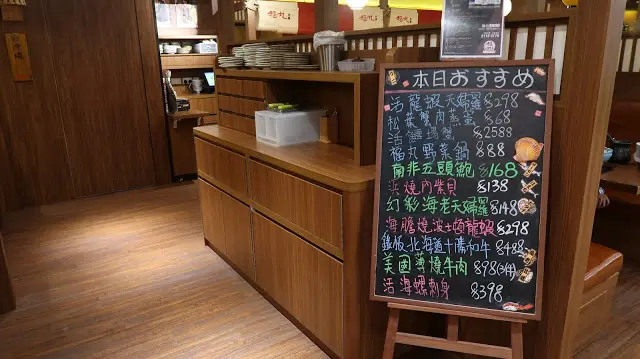 本日おすすめ
活龍蝦天婦羅 $298
松葉蟹肉蒸蛋 $68
活鱈場蟹 $2588
福丸野菜鍋 $88
南非五頭鮑 $168
浜燒內紫貝 $138
幻彩海老天婦羅 $148
海膽燒波士頓龍蝦 $298
鐵板北海道十勝和牛 $488
美國薄燒牛肉 $98(3件)
活海螺刺身 $398